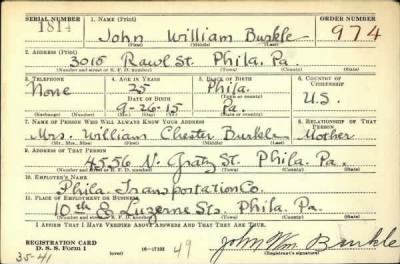 SERIAL NUMBER 1. NAME (Print) ORDER NUMBER
1814 John William Burkle 974
(First) (Middle) (Last)
2. ADDRESS (Print)
3015 Rawl St. Phila. Pa.
(Number and street or R. F. D. number) (Town) (County) (State)
3. TELEPHONE 4. AGE IN YEARS 5. PLACE OF BIRTH 6. COUNTRY OF CITIZENSHIP
None 25 Phila. U.S.
DATE OF BIRTH (Town or county)
9-26-15 Pa.
(Exchange) (Number) (Mo.) (Day) (Yr.) (State or country)
7. NAME OF PERSON WHO WILL ALWAYS KNOW YOUR ADDRESS 8. RELATIONSHIP OF THAT PERSON
Mrs. William Chester Burkle Mother
(Mr., Mrs., Miss) (First) (Middle) (Last)
9. ADDRESS OF THAT PERSON
4556 N. Gratz St. Phila. Pa.
(Number and street or R. F. D. number) (Town) (County) (State)
10. EMPLOYER'S NAME
Phila. Transportation Co.
11. PLACE OF EMPLOYMENT OR BUSINESS
10th & Luzerne Sts. Phila. Pa.
(Number and street or R. F. D. number) (Town) (County) (State)
I AFFIRM THAT I HAVE VERIFIED ABOVE ANSWERS AND THAT THEY ARE TRUE.
REGISTRATION CARD
D. S. S. Form 1 (over) 49 John Wm. Burkle
35-41 (Registrant's signature)